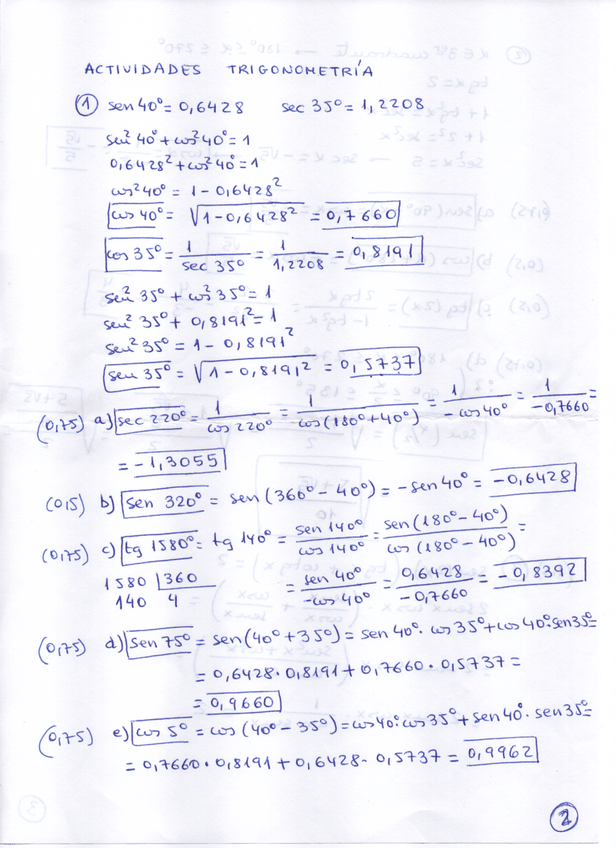 ACTIVIDADES TRIGONOMETRÍA
① sen 40º = 0,6428 sec 35º = 1,2208
sen² 40º + cos² 40º = 1
0,6428² + cos² 40º = 1
cos² 40º = 1 - 0,6428²
cos 40º = √1 - 0,6428² = 0,7660
cos 35º = 1/sec 35º = 1/1,2208 = 0,8191
sen² 35º + cos² 35º = 1
sen² 35º + 0,8191² = 1
sen² 35º = 1 - 0,8191²
sen 35º = √1 - 0,8191² = 0,5737
(0,75) a) sec 220º = 1/cos 220º = 1/cos(180º+40º) = 1/-cos 40º = 1/-0,7660 =
= -1,3055
(0,5) b) sen 320º = sen (360º - 40º) = -sen 40º = -0,6428
(0,75) c) tg 1580º = tg 140º = sen 140º/cos 140º = sen (180º - 40º)/cos (180º - 40º) =
1580 |360
140 4
= sen 40º/-cos 40º = 0,6428/-0,7660 = -0,8392
(0,75) d) sen 75º = sen (40º + 35º) = sen 40º · cos 35º + cos 40º · sen 35º =
= 0,6428 · 0,8191 + 0,7660 · 0,5737 =
= 0,9660
(0,75) e) cos 5º = cos (40º - 35º) = cos 40º · cos 35º + sen 40º · sen 35º =
= 0,7660 · 0,8191 + 0,6428 · 0,5737 = 0,9962
②